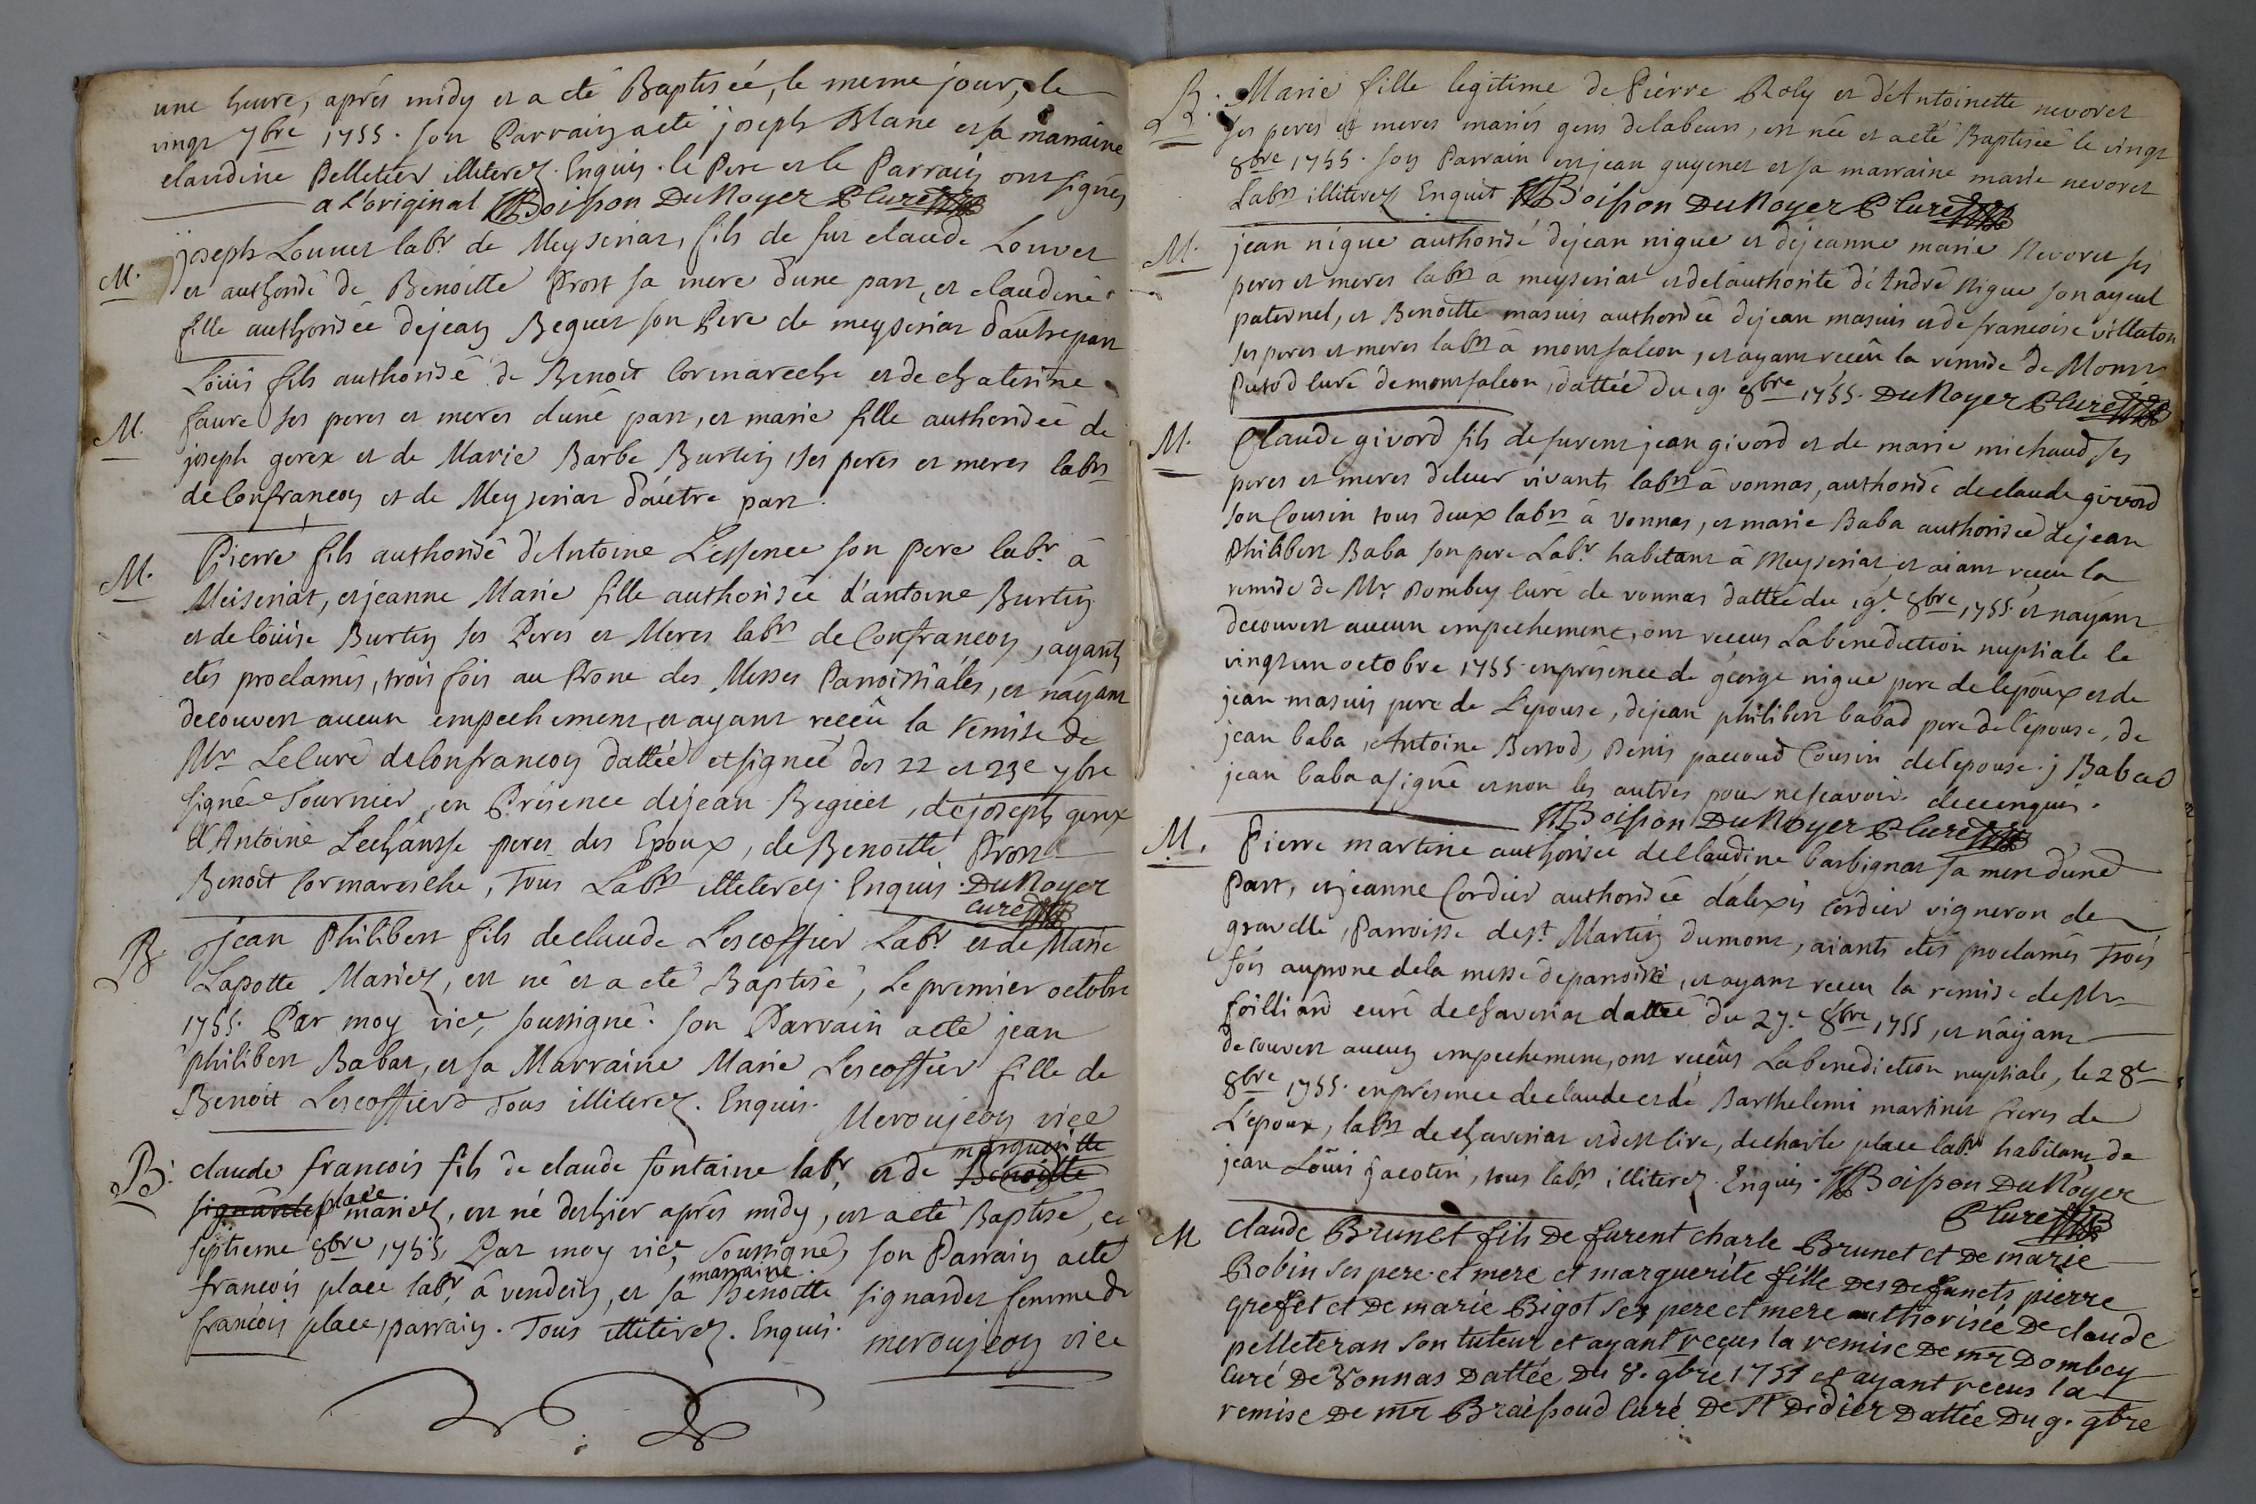 une heure, aprés midy et a eté Baptisée, le meme jour, le
vingt 7bre 1755. son Parrain a eté joseph Blanc et sa marraine
claudine Pelletier illiterez. Enquis. le Pere et le Parrain ont signés
a l'original Boisson DuNoyer Curé
M. joseph Louvet labr. de Meyseriat, fils de fut claude Louvet
et authorisé de Benoitte Prost sa mere d'une part, et claudine
fille authorisée de jean Beguet son Pere de meyseriat d'autre part
M. Loüis fils authorisé de Benoit Cormareche et de chaterine
faure ses peres et meres d'une part, et marie fille authorisée de
joseph gerex et de Marie Barbe Burtin, ses peres et meres labrs
de Confrançon et de Meyseriat d'autre part.
M. Pierre fils authorisé d'Antoine L'essence son pere labr. à
Meiseriat, et jeanne Marie fille authorisée d'antoine Burtin
et de loüise Burtin ses Peres et Meres labrs de Confrancon, ayants
etés proclamés, trois fois au Prone des Messes Parroissiales, et n'ayant
decouvert aucun empechement, et ayant reçeü la Remise de
Mr Le Curé de Confrancon dattée et signée des 22 et 23e 7bre
signée Tournier, en Présence de jean Beguet, de joseph gerex
d'Antoine Lechausse peres des Epoux, de Benoitte Prost
Benoit Cormaresche, Tous Labrs illiterez. Enquis. DuNoyer
curé
B. jean Philibert fils de claude Lescoffier Labr et de Marie
Lapotte Mariez, est né et a eté Baptisé, le premier octobre
1755. Par moy vice. soussigné. son Parrain a eté jean
philibert Babat, et sa Marraine Marie Lescoffier fille de
Benoit Lescoffier Tous illiterez. Enquis. Meroujeon vice
marguerite
B. claude francois fils de claude fontaine labr, et de Benoitte
signante place mariez, est né d'hier aprés midy, et a eté Baptisé, ce
septieme 8bre 1755, Par moy vice, soussigné, son Parrain a eté
marraine
francois place labr, à vendein, et sa Benoitte signarder femme de
francois place, parrain. Tous illiterez. Enquis. meroujeon vice
B. Marie fille legitime de Piérre Roly et d'Antoinette nevoret
ses peres et meres mariés gens de labeurs, est née et a eté Baptisée le vingt
8bre 1755. son Parrain est jean guyenet et sa marraine marie nevoret
Labrs illiterez Enquit Boisson DuNoyer Curé
M. jean nigue authorisé de jean nigue et de jeanne marie Nevoret ses
peres et meres labrs à meyseriat et de l'authorité d'André Nigue son ayeul
paternel, et Benoitte masuis authorisée de jean masuis et de francoise villaton
ses peres et meres labrs à montfalcon, et ayant reçeü la remise de Monsr
Putod Curé de montfalcon, dattée du 19. 8bre 1755. DuNoyer Curé
M. Claude givord fils de furent jean givord et de marie michaud ses
peres et meres de leur vivants labrs à vonnas, authorisé de claude givord
son Cousin tous deux labrs à Vonnas, et marie Baba authorisée de jean
Philibert Baba son pere Labr. habitant à Meyseriat, et aiant reçeu la
remise de Mr. Dombey Curé de vonnas dattée du 19e. 8bre 1755. et n'ayant
decouvert aucun empechement, ont receus La benediction nuptiale le
vingt un octobre 1755. en présence de géorge nigue pere de l'epoux et de
jean masuis pere de L'epouse, de jean philibert babad pere de l'epouse, de
jean baba, Antoine Berrod, Denis paccoud Cousin de l'epouse. j Babad
jean baba a signé et non les autres pour ne scavoir de ce enquis.
Boisson DuNoyer Curé
M. Pierre martine authorisée de Claudine barbignat sa mere d'une
Part, et jeanne Cordier authorisée d'alexis Cordier vigneron de
gravelle, Parroisse de st. Martin dumont, aiants etés proclamés Trois
fois au prone de la messe de paroisse, et ayant receu la remise de Mr
foilliard curé de Chaveriat dattée du 27.e 8bre 1755, et n'ayant
decouvert aucun empechement, ont reçeüs La benediction nuptiale, le 28e
8bre 1755. en présence de claude et de Barthelemi martinet freres de
L'époux, labrs de chaveriat et de st cire, de charle place labr. habitant, de
jean Loüis jacotin, tous labrs illiterez. Enquis. Boisson DuNoyer
Curé
M claude Brunet fils De furent charle Brunet et De marie
Robin ses pere et mere et marguerite fille Des Defuncts pierre
grefet et De marie Bigot ses pere et mere authorisée De claude
pelleteran son tuteur et ayant reçus la remise De mr Dombey
Curé De Vonnas Dattée Du 8. 9bre 1755 et ayant recus la
remise De mr Braissoud Curé De St Didier Dattée Du 9. 9bre